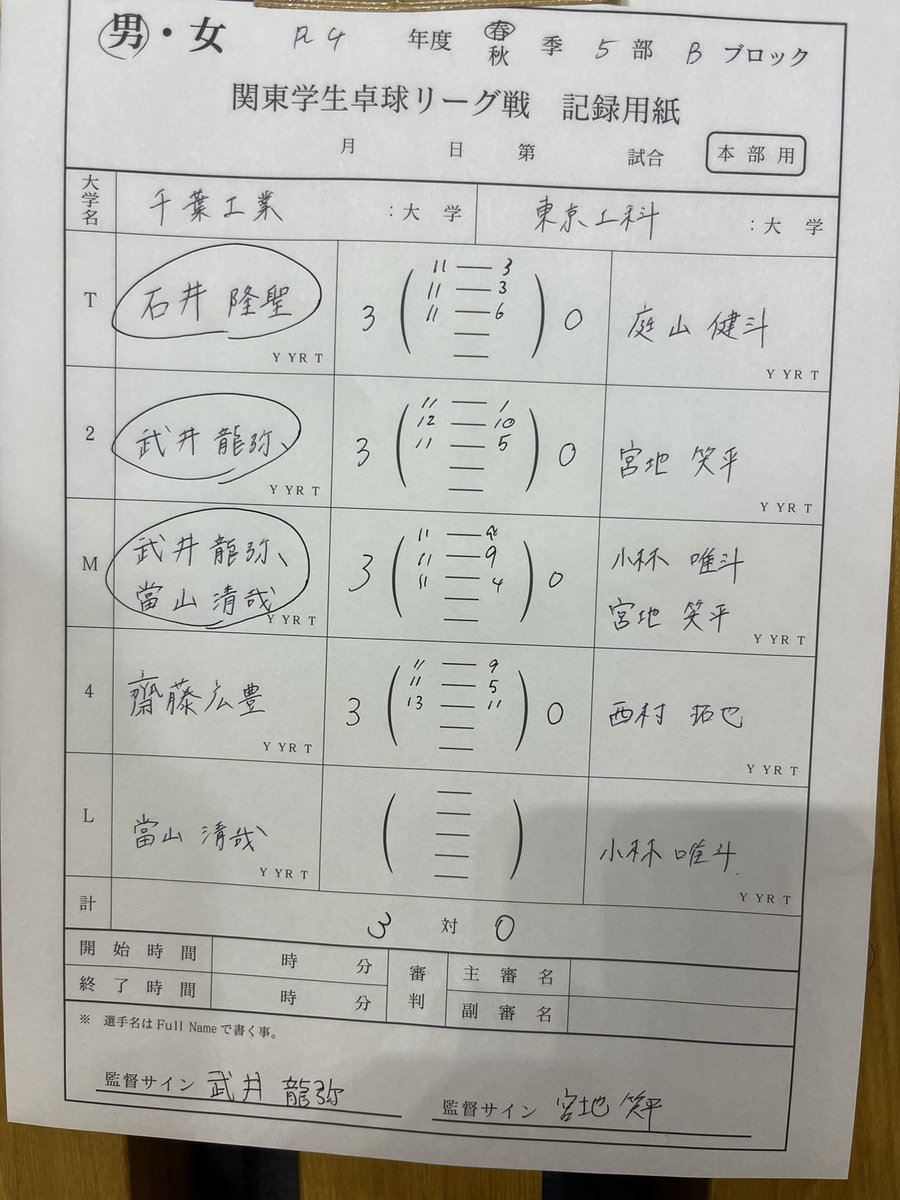 男・女 R4 年度 春 秋 季 5 部 B ブロック
関東学生卓球リーグ戦 記録用紙
月 日 第 試合 本部用
大学名 千葉工業 :大学 東京工科 :大学
T 石井 隆聖 3 ( 11 — 3 ) 0 庭山 健斗
11 — 3
11 — 6
—
—
Y YR T Y YR T
2 武井 龍弥 3 ( 11 — 1 ) 0 宮地 笑平
12 — 10
11 — 5
—
—
Y YR T Y YR T
M 武井 龍弥、 3 ( 11 — ) 0 小林 唯斗
當山 清哉 11 — 9 宮地 笑平
11 — 4
—
—
Y YR T Y YR T
4 齋藤 広豊 3 ( 11 — 9 ) 0 西村 拓也
11 — 5
13 — 11
—
—
Y YR T Y YR T
L 當山 清哉 ( — ) 小林 唯斗
—
—
—
—
Y YR T Y YR T
計 3 対 0
開始時間 時 分 審判 主審名
終了時間 時 分 副審名
※ 選手名はFull Nameで書く事。
監督サイン 武井 龍弥 監督サイン 宮地 笑平